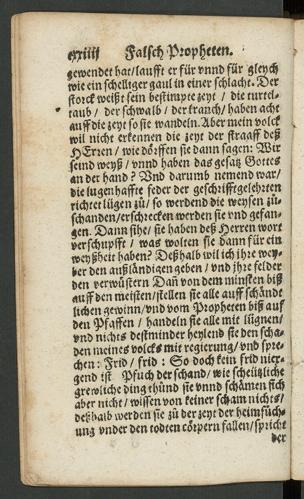 cxxiiii Falsch Propheten.
gewendet hat/laufft er für vnnd für gleych
wie ein schelliger gaul in einer schlacht. Der
storck weißt sein bestimpte zeyt / die turtel-
taub / der schwalb / der tranch/ haben acht
auff die zeyt so sie wandeln. Aber mein volck
wil nicht erkennen die zeyt der straaff deß
HErren / wie dörffen sie dann sagen: Wir
seind weyß / vnnd haben das gesatz Gottes
an der hand? Vnd darumb nemend war/
die lugenhaffte feder der geschrifftgelehrten
richtet lügen zů/ so werdend die weysen zů-
schanden/erschrecken werden sie vnd gefan-
gen. Dann sihe/ sie haben deß Herren wort
verschupfft / was wolten sie dann für ein
weyßheit haben? Deßhalb wil ich jhre wey-
ber den außländigen geben/ vnd jhre felder
den verwüstern Dañ von dem minsten biß
auff den meisten/stellen sie alle auff schändt
lichen gewinn/vnd vom Propheten biß auf
den Pfaffen / handeln sie alle mit lügnen/
vnd nichts destminder heylend sie den scha-
den meines volcks mit regierung/ vnd spre-
chen: Frid / frid: So doch kein frid nier-
gend ist Pfuch der schand/ wie scheützliche
grewliche ding thůnd sie vnnd schämen sich
aber nicht/ wissen von keiner scham nichts/
deßhalb werden sie zů der zeyt der heimsůch-
ung vnder den todten cörpern fallen/ spricht
der